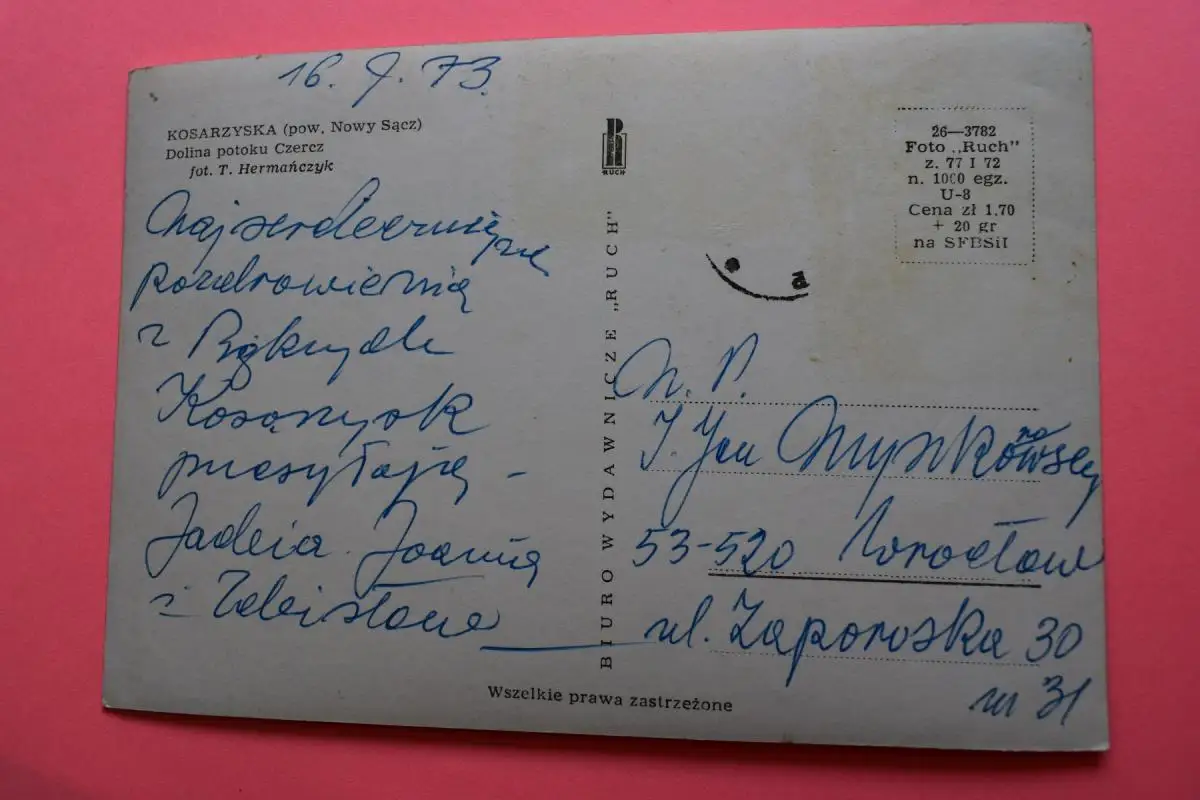 16. 7. 73.
KOSARZYSKA (pow. Nowy Sącz)
Dolina potoku Czercz
fot. T. Hermańczyk
Najserdeczniejsze
pozdrowienia
z
Kosarzysk
przesyłają -
Jadzia Joanna
i Zdzisława
RUCH
BIURO WYDAWNICZE „RUCH"
26—3782
Foto „Ruch"
z. 77 I 72
n. 1000 egz.
U-8
Cena zł 1.70
+ 20 gr
na SFBSiI
a
W. P.
J. Jan
53-520 Wrocław
ul. Zaporoska 30
m 31
Wszelkie prawa zastrzeżone